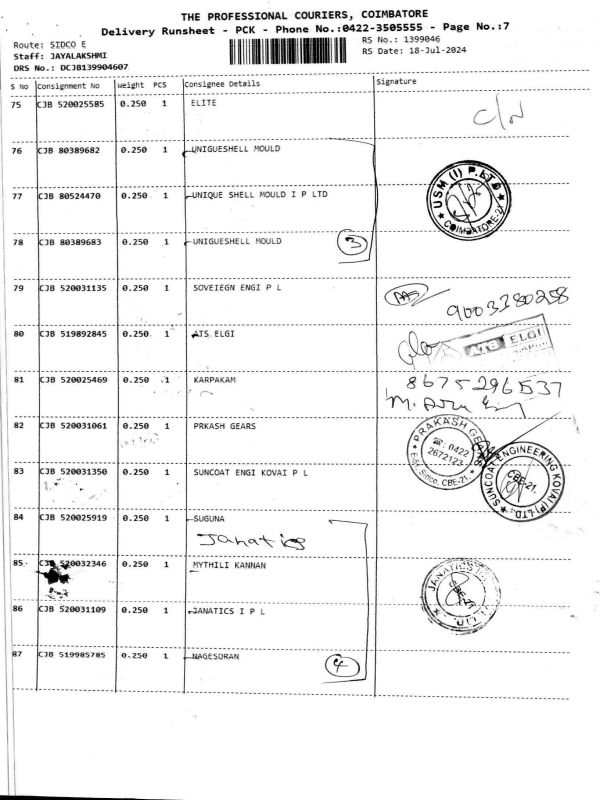 THE PROFESSIONAL COURIERS, COIMBATORE
Delivery Runsheet - PCK - Phone No.:0422-3505555 - Page No.:7
Route: SIDCO E
Staff: JAYALAKSHMI
DRS No.: DCJB139904607
RS No.: 1399046
RS Date: 18-Jul-2024
S No Consignment No Weight PCS Consignee Details Signature
75 CJB 520025585 0.250 1 ELITE
76 CJB 80389682 0.250 1 UNIGUESHELL MOULD
77 CJB 80524470 0.250 1 UNIQUE SHELL MOULD I P LTD
USM (I) P.LTD
COIMBATORE-21
78 CJB 80389683 0.250 1 UNIGUESHELL MOULD
3
79 CJB 520031135 0.250 1 SOVEIEGN ENGI P L
9003380258
80 CJB 519892845 0.250 1 ATS ELGI
ATS ELGI
81 CJB 520025469 0.250 1 KARPAKAM
8675296537
82 CJB 520031061 0.250 1 PRKASH GEARS
PRAKASH GEARS
☎: 0422
2672123
CBE-21.
83 CJB 520031350 0.250 1 SUNCOAT ENGI KOVAI P L
SUNCOAT ENGINEERING KOVAI (P) LTD.
CBE-21.
84 CJB 520025919 0.250 1 SUGUNA
Janatics
85 CJB 520032346 0.250 1 MYTHILI KANNAN
JANATICS
CBE-21
86 CJB 520031109 0.250 1 JANATICS I P L
87 CJB 519985785 0.250 1 NAGESORAN
4